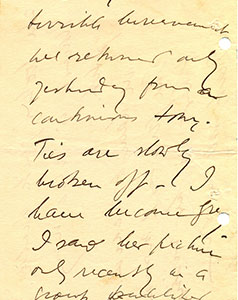 terrible bereavement
we returned only
yesterday from a
continuous tour.
Ties are slowly
broken off - I
have become
I saw her picture
only recently in a
group